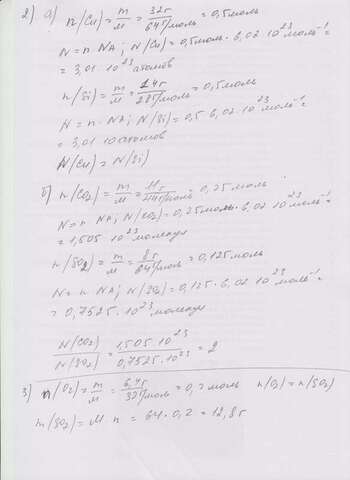 2) а) n(Cu) = m/M = 32г/64г/моль = 0,5 моль
N = n · NA; N(Cu) = 0,5 моль · 6,02 · 10²³ моль⁻¹ =
= 3,01 · 10²³ атомов
n(Si) = m/M = 14г/28г/моль = 0,5 моль
N = n · NA; N(Si) = 0,5 · 6,02 · 10²³ моль⁻¹ =
= 3,01 · 10 атомов
N(Cu) = N(Si)
б) n(CO₂) = m/M = 11г/44г/моль = 0,25 моль
N = n · NA; N(CO₂) = 0,25 моль · 6,02 · 10²³ моль⁻¹ =
= 1,505 · 10²³ молекул
n(SO₂) = m/M = 8г/64г/моль = 0,125 моль
N = n · NA; N(SO₂) = 0,125 · 6,02 · 10²³ моль⁻¹ =
= 0,7525 · 10²³ молекул
N(CO₂)/N(SO₂) = 1,505 · 10²³/0,7525 · 10²³ = 2
3) n(O₂) = m/M = 6,4г/32г/моль = 0,2 моль n(O₂) = n(SO₂)
m(SO₂) = M · n = 64 · 0,2 = 12,8г